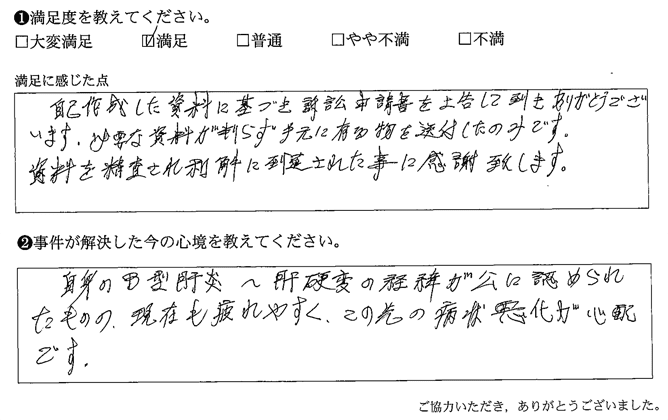 ❶満足度を教えてください。
□大変満足 ☑満足 □普通 □やや不満 □不満
満足に感じた点
自己作成した資料に基づき訴訟申請書を上告して到きありがとうござ
います。必要な資料が判らず手元に有る物を送付したのみです。
資料を精査され和解に到達された事に感謝致します。
❷事件が解決した今の心境を教えてください。
自身のB型肝炎〜肝硬変の経緯が公に認められ
たものの、現在も疲れやすく、この先の病状悪化が心配
です。
ご協力いただき、ありがとうございました。